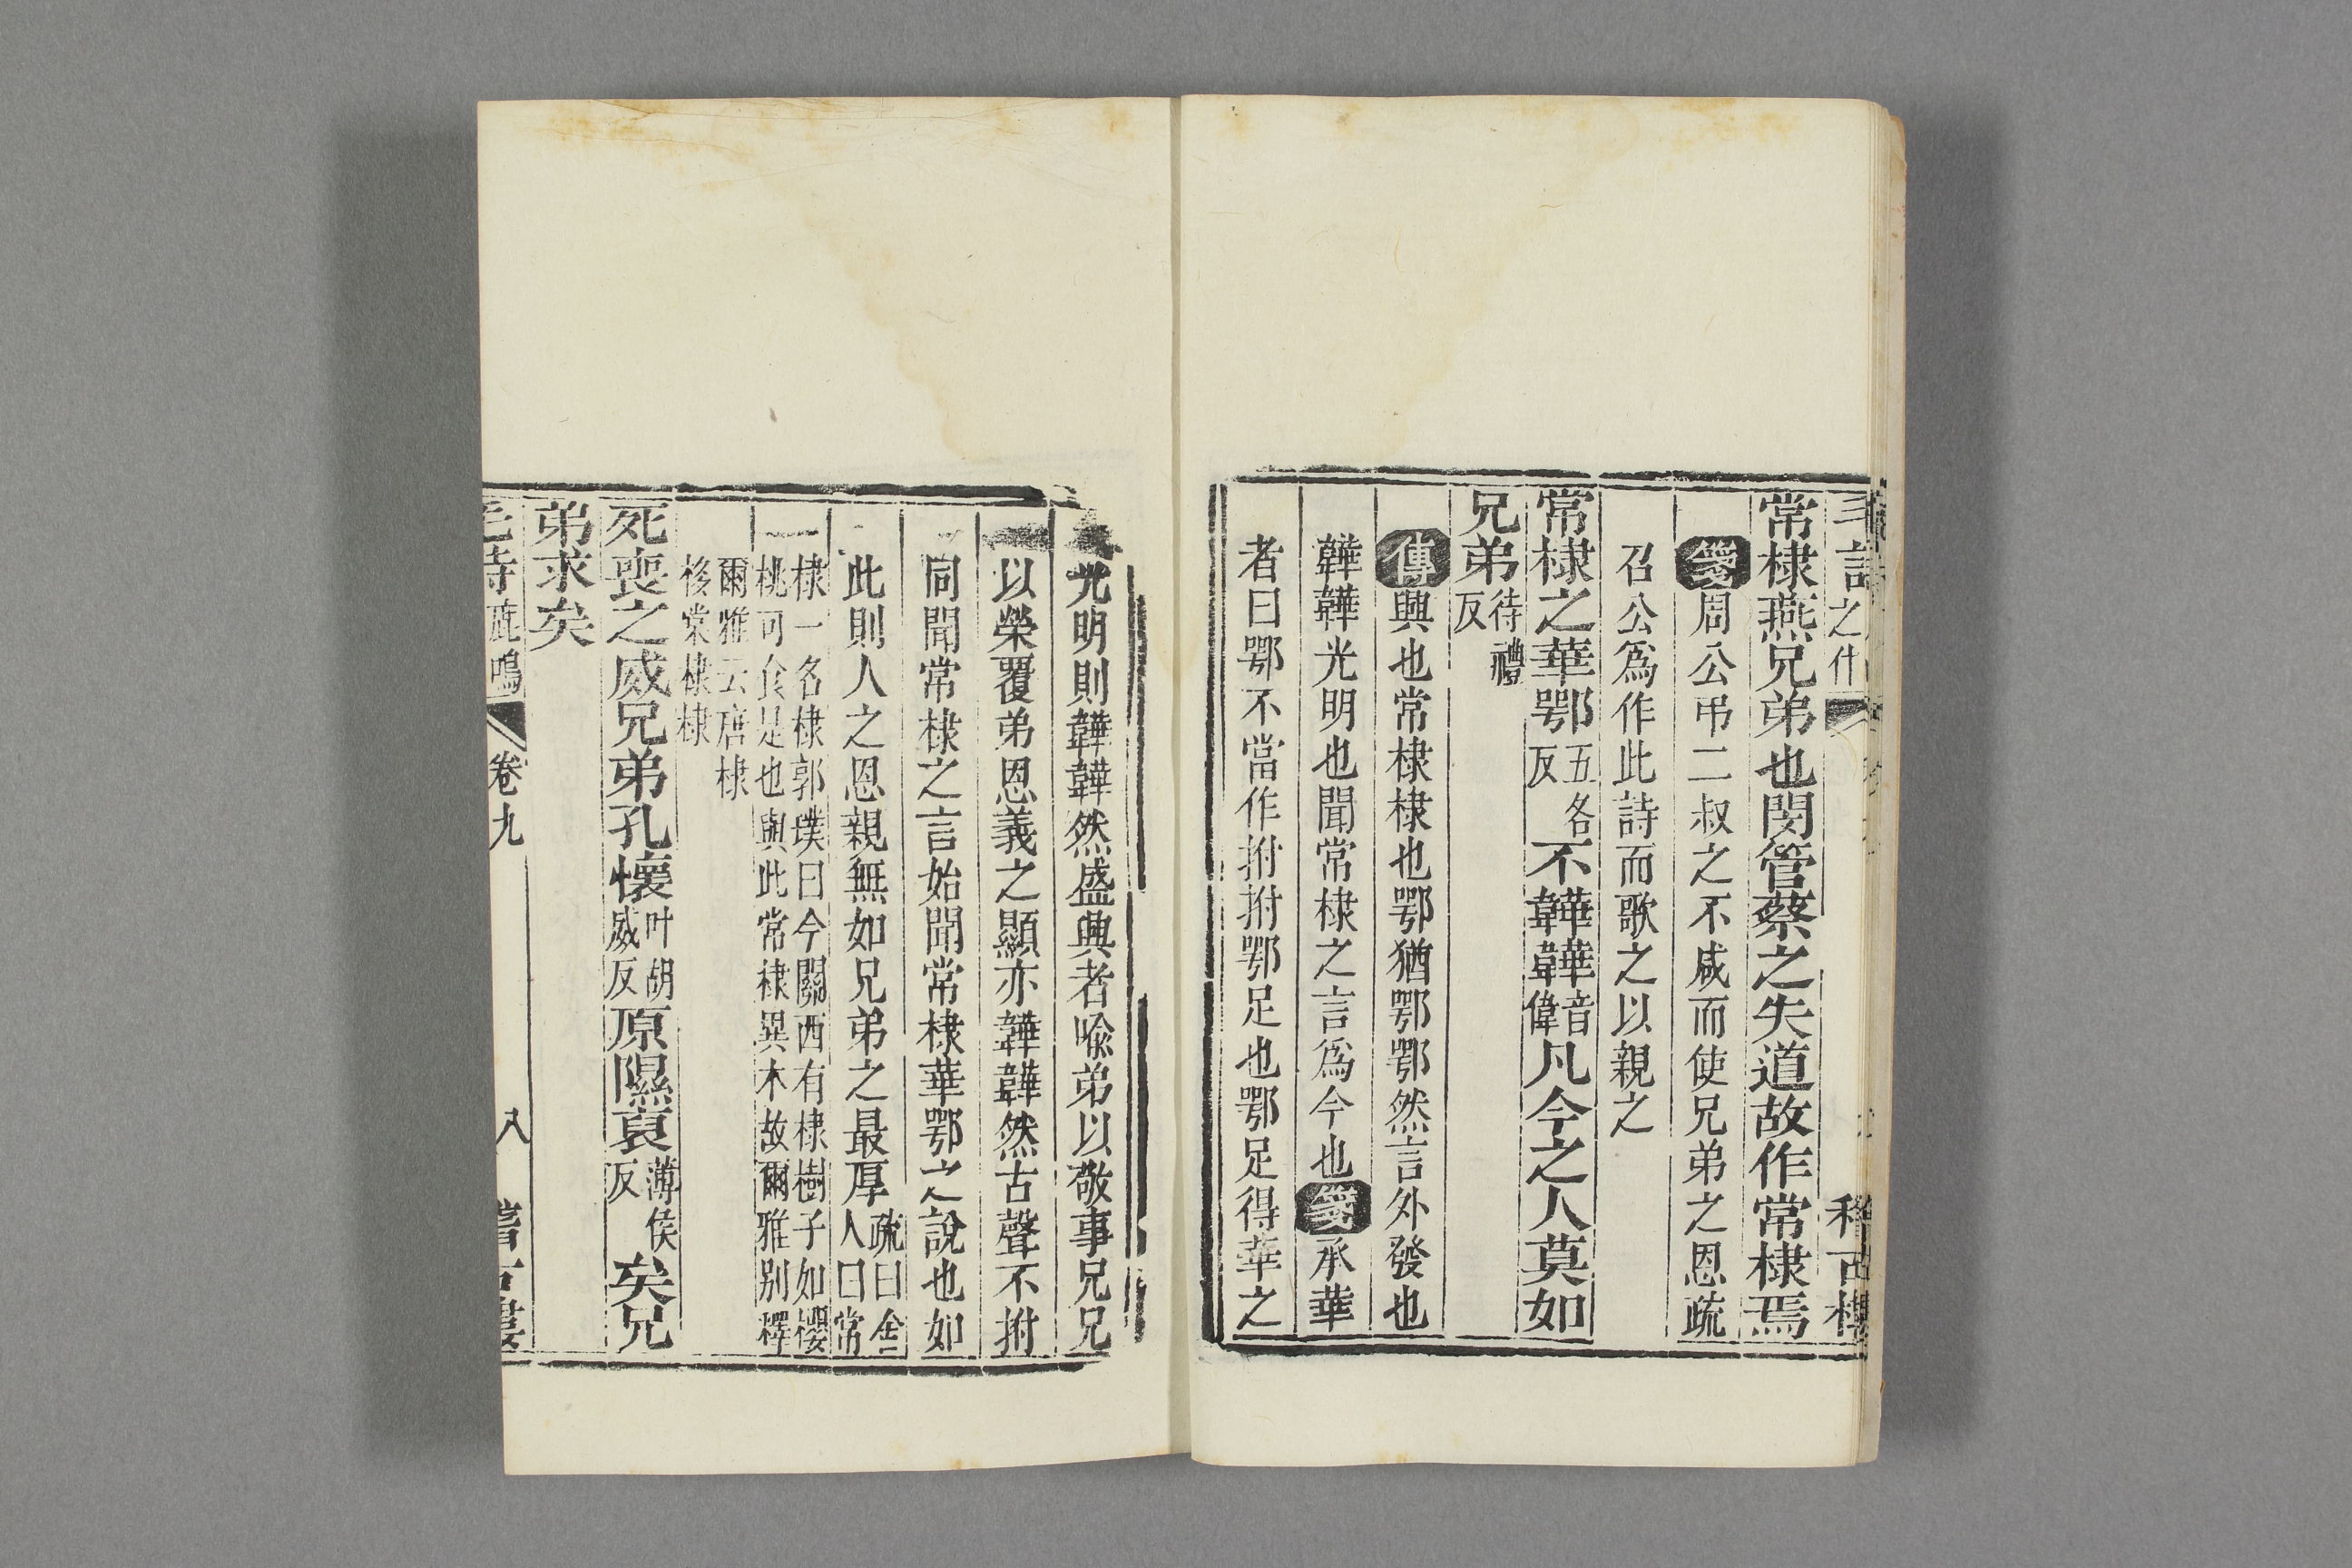 毛詩之什
稽古樓
常棣燕兄弟也閔管蔡之失道故作常棣焉
箋周公弔二叔之不咸而使兄弟之恩疏
召公爲作此詩而歌之以親之
常棣之華鄂五各反不韡韡音偉凡今之人莫如
兄弟待禮反
傳興也常棣棣也鄂猶鄂鄂然言外發也
韡韡光明也聞常棣之言爲今也箋承華
者曰鄂不當作拊拊鄂足也鄂足得華之
光明則韡韡然盛興者喩弟以敬事兄兄
以榮覆弟恩義之顯亦韡韡然古聲不拊
同聞常棣之言始聞常棣華鄂之說也如
此則人之恩親無如兄弟之最厚疏曰舍人曰常
棣一名棣郭璞曰今關西有棣樹子如櫻
桃可食是也與此常棣異木故爾雅別釋
爾雅云唐棣
栘棠棣棣
死喪之威兄弟孔懷叶胡威反原隰裒薄侯反矣兄
弟求矣
毛詩鹿鳴
卷九
八
稽古樓